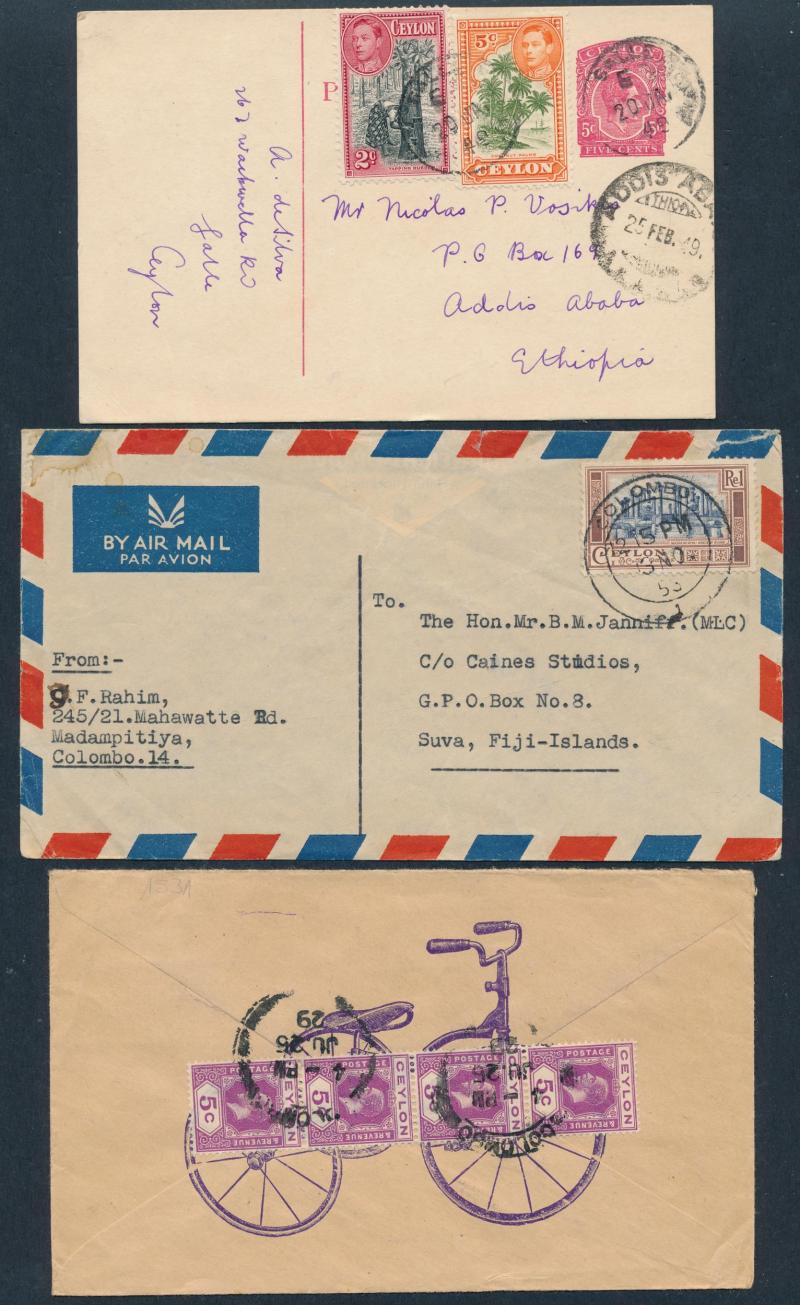 CEYLON
2c
TAPPING RUBBER
5c
CEYLON
5c
FIVE CENTS
P
A. de Silva
267 Wackwella Rd
Galle
Ceylon
Mr Nicolas P. Vosikis
P.O Box 169
Addis Ababa
Ethiopia
20 JA.
ADDIS ABA
25 FEB. 49.
BY AIR MAIL
PAR AVION
COLOMBO
15 PM
NO
53
Re1
CEYLON
From:-
F.Rahim,
245/21.Mahawatte Rd.
Madampitiya,
Colombo.14.
To.
The Hon.Mr.B.M.Janniff.(MLC)
C/o Caines Studios,
G.P.O.Box No.8.
Suva, Fiji-Islands.
POSTAGE
CEYLON
5c
& REVENUE
POSTAGE
CEYLON
5c
& REVENUE
POSTAGE
CEYLON
5c
& REVENUE
POSTAGE
CEYLON
5c
& REVENUE
4 - PM
JU 25
29
4 - PM
JU 25
29